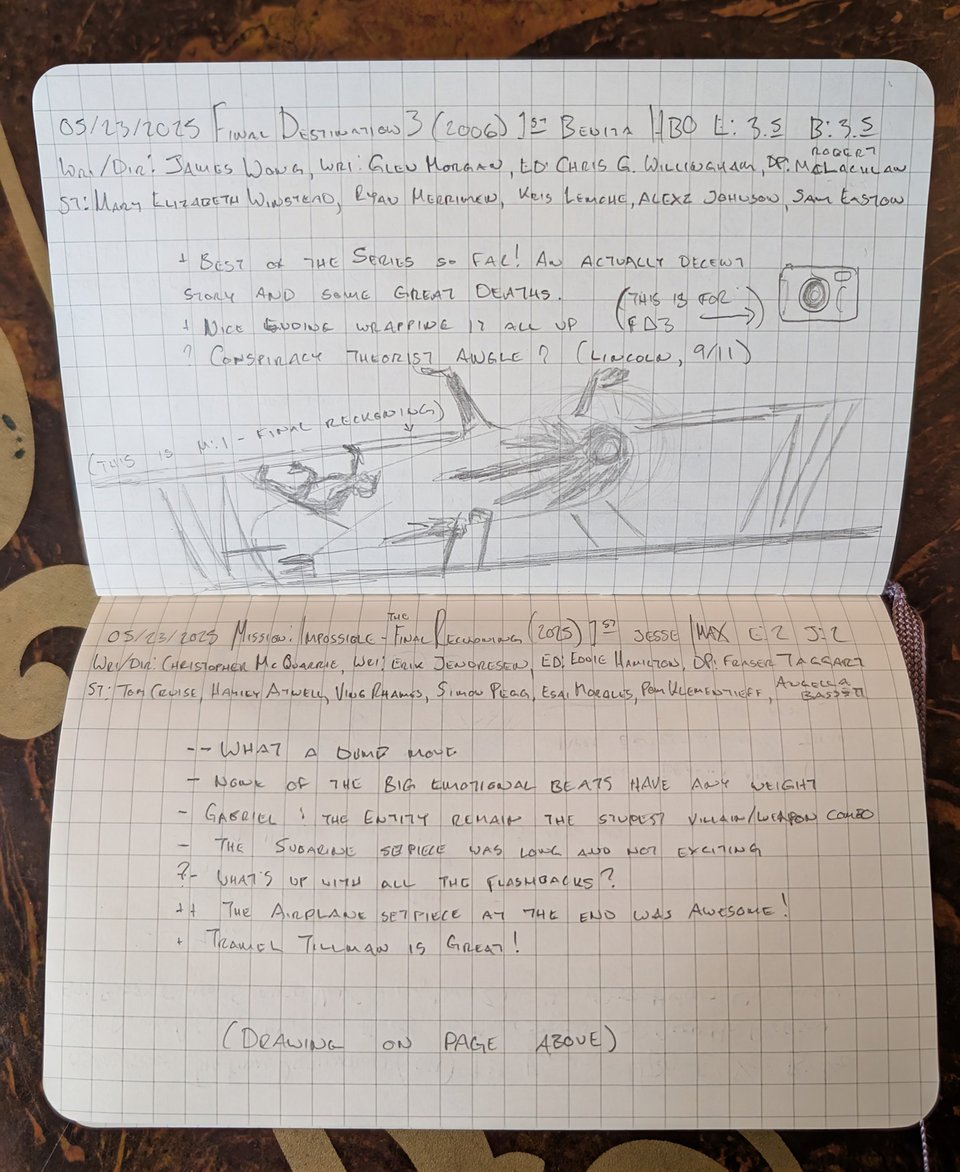 05/23/2025 FINAL DESTINATION 3 (2006) 1ST BENITA HBO E: 3.5 B: 3.5
WRI/DIR: JAMES WONG, WRI: GLEN MORGAN, ED: CHRIS G. WILLINGHAM, DP: ROBERT MCLACHLAN
ST: MARY ELIZABETH WINSTEAD, RYAN MERRIMEN, KRIS LEMCHE, ALEXZ JOHNSON, SAM EASTON
+ BEST OF THE SERIES SO FAR! AN ACTUALLY DECENT
STORY AND SOME GREAT DEATHS.
(THIS IS FOR
FD3 →)
+ NICE ENDING WRAPPING IT ALL UP
? CONSPIRACY THEORIST ANGLE? (LINCOLN, 9/11)
(THIS IS M:I - FINAL RECKONING)
05/23/2025 MISSION: IMPOSSIBLE - THE FINAL RECKONING (2025) 1ST JESSE /MAX E: 2 J: 2
WRI/DIR: CHRISTOPHER MCQUARRIE, WRI: ERIK JENDRESEN, ED: EDDIE HAMILTON, DP: FRASER TAGGART
ST: TOM CRUISE, HAYLEY ATWELL, VING RHAMES, SIMON PEGG, ESAI MORALES, POM KLEMENTIEFF, ANGELLA BASSETT
-- WHAT A DUMB MOVE
- NONE OF THE BIG EMOTIONAL BEATS HAVE ANY WEIGHT
- GABRIEL & THE ENTITY REMAIN THE STUPEST VILLAIN/WEAPON COMBO
- THE SUBARINE SEPIECE WAS LONG AND NOT EXCITING
?- WHAT'S UP WITH ALL THE FLASHBACKS?
++ THE AIRPLANE SETPIECE AT THE END WAS AWESOME!
+ TRAMEL TILLMAN IS GREAT!
(DRAWING ON PAGE ABOVE)